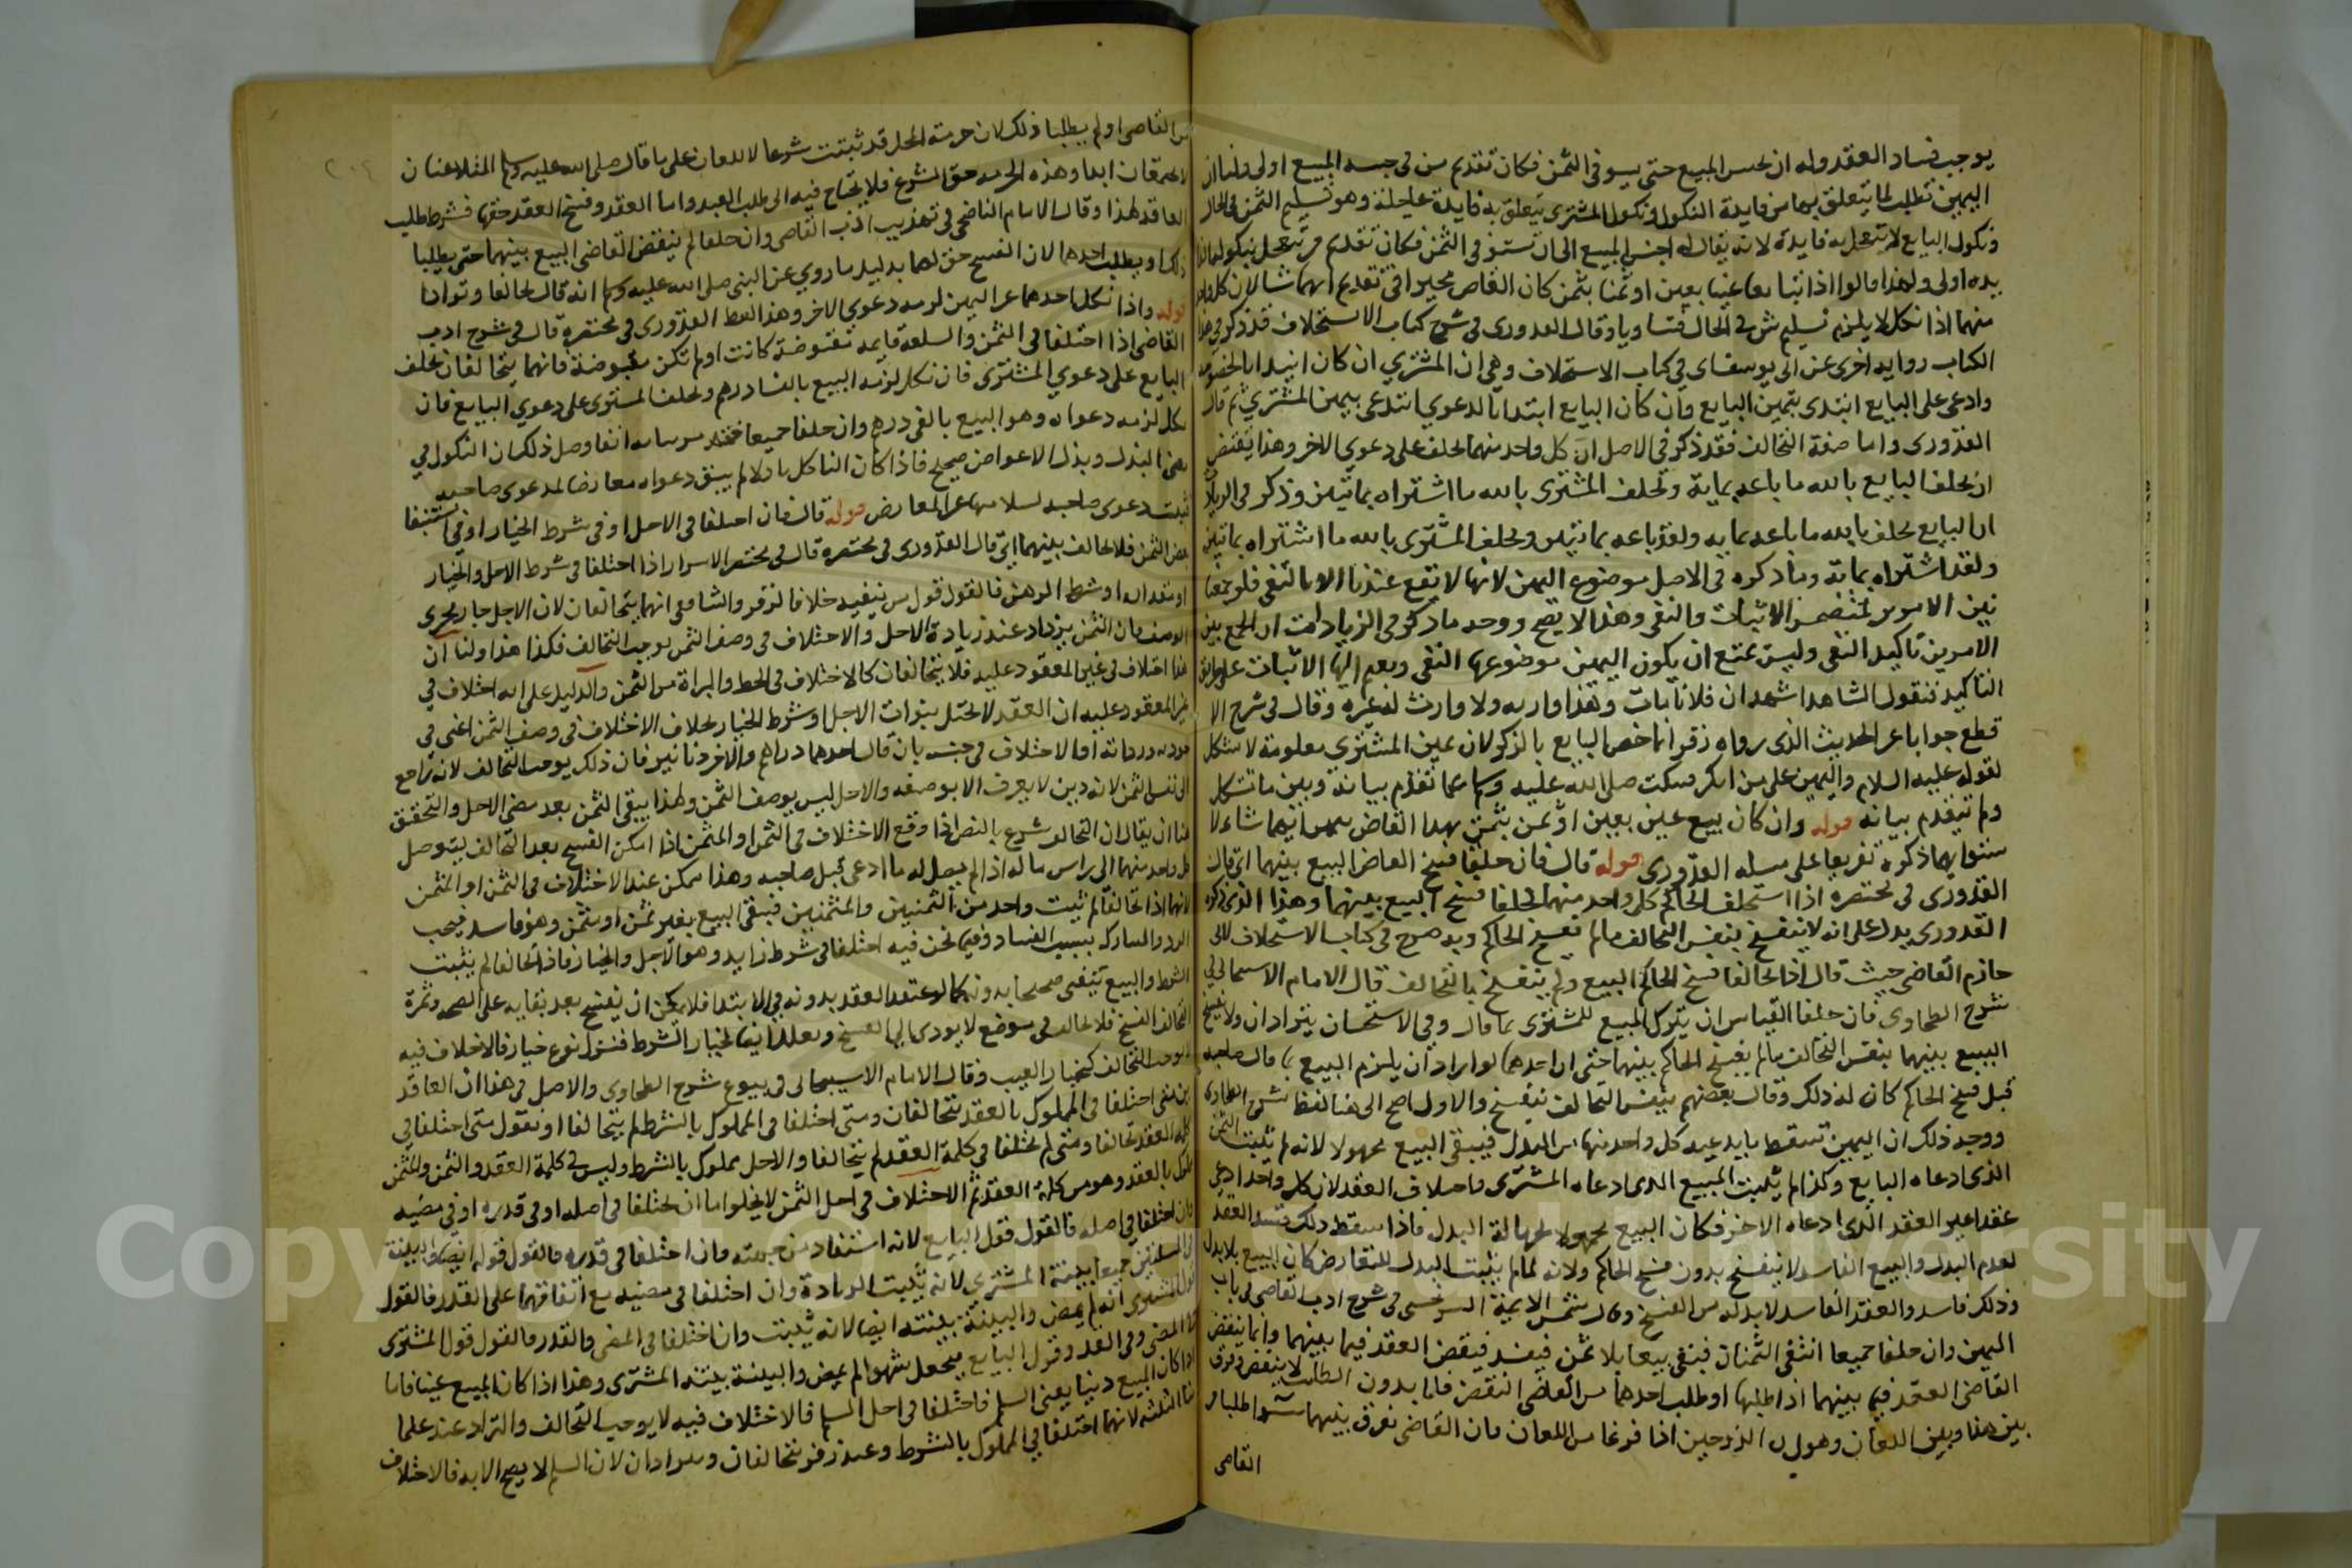 يوجب فساد العقد وله ان يحبس المبيع حتى يستوفى الثمن فكان تقديم من في حبسه المبيع اولى ولنا ان
اليمين تطلب لما يتعلق بها من فايدة النكول ونكول المشترى يتعلق به فايدة عاجلة وهو تسليم الثمن في الحال
ونكول البايع لا يتعجل به فايدة لانه يقال له احبس المبيع الى ان تستوفى الثمن فكان تقديم من يتعجل بنكوله
يده اولى ولهذا قالوا اذا تبايعا عينا بعين او ثمنا بثمن كان القاضى مخيرا فى تقديم ايهما شا لان كل واحد
منهما اذا نكل لا يلزم تسليم شى فى الحال فتساويا وقال القدورى فى شرح كتاب الاستحلاف قد ذكر فى هذا
الكتاب رواية اخرى عن ابى يوسف اى فى كتاب الاستحلاف وهى ان المشتري ان كان ابتدا بالخصومة
وادعى على البايع ابتدى بيمين البايع وان كان البايع ابتدا بالدعوي ابتدى بيمين المشتري ثم قال
القدورى واما صفة التحالف فقد ذكر فى الاصل ان كل واحد منهما يحلف على دعوي الاخر وهذا يقتضى
ان يحلف البايع بالله ما باعه بماية ويحلف المشترى بالله ما اشتراه بمائتين وذكر فى الزيادات
ان البايع يحلف بالله ما باعه بمايه ولقد باعه بمائتين ويحلف المشترى بالله ما اشتراه بمائتين
ولقد اشتراه بماية وما ذكره فى الاصل موضوع اليمين لانها لا تقع عندنا الا بالنفى فلو جمعنا
بين الامرين لتضمن الاثبات والنفى وهذا لا يصح ووجه ما ذكر فى الزيادات ان الجمع بين
الامرين تاكيد النفى وليس يمتنع ان يكون اليمين موضوعها النفى ويضم اليها الاثبات على وجه
التاكيد فنقول الشاهد اشهد ان فلانا مات وهذا وارثه ولا وارث له غيره وقال فى شرح الا
قطع جوابا عن الحديث الذى رواه زفر انما خص البايع بالذكر لان يمين المشترى معلومة لا تشكل
لقوله عليه السلام واليمين على من انكر فسكت صلى الله عليه وسلم عما تقدم بيانه وبين ما تشكل
ولم يتقدم بيانه قوله وان كان بيع عين بعين او ثمن بثمن بهذا القاضى بيمين ايهما شاء لا
ستوايهما ذكره تفريعا على مسله القدورى قوله قال فان حلفا فسخ القاضى البيع بينهما اى قال
القدورى فى مختصره اذا استحلف الحاكم كل واحد منهما فحلفا فسخ البيع بينهما وهذا الذى ذكره
القدورى يدل على انه لا ينفسخ بنفس التحالف مالم يفسخ الحاكم وبه صرح فى كتاب الاستحلاف لابى
حازم القاضى حيث قال اذا تحالفا فسخ الحاكم البيع ولم ينفسخ بالتحالف قال الامام الاسبيجابى فى
شرح الطحاوى فان حلفا القياس ان يترك المبيع للمشترى بما قال وفى الاستحسان يترادان ولا ينفسخ
البيع بينهما بنفس التحالف مالم يفسخ الحاكم بينهما حتى ان احدهما لو اراد ان يلزم البيع بما قال صاحبه
قبل فسخ الحاكم كان له ذلك وقال بعضهم بنفس التحالف ينفسخ والاول اصح الى هنا لفظ شرح الطحاوى
ووجه ذلك ان اليمين تسقط ما يدعيه كل واحد منهما من البدل فيبقى البيع مجهولا لانه لم يثبت الثمن
الذى ادعاه البايع وكذا لم يثبت المبيع الذى ادعاه المشترى بخلاف العقد لان كل واحد ادعى
عقدا غير العقد الذى ادعاه الاخر فكان البيع مجهولا لجهالة البدل فاذا سقط ذلك فسد العقد
لعدم البدل والبيع الفاسد لا ينفسخ بدون فسخ الحاكم ولانه لما لم يثبت البدل للتعارض كان البيع بلا بدل
وذلك فاسد والعقد الفاسد لا بد له من الفسخ وقال شمس الايمة السرخسى فى شرح ادب القاضى فى باب
اليمين وان حلفا جميعا انتفى الثمنان فبقى بيعا بلا ثمن فيفسد فينقض العقد فيما بينهما وانما ينقض
القاضى العقد فيما بينهما اذا طلبا او طلب احدهما من القاضى النقض فاما بدون الطلب لا ينقض وفرق
بين هذا وبين اللعان وهو ان الزوجين اذا فرغا من اللعان فان القاضى يفرق بينهما سوا طلبا من
القاضى
من القاضى او لم يطلبا ذلك لان حرمة المحل قد ثبتت شرعا لللعان على ما قال صلى الله عليه وسلم المتلاعنان
لا يجتمعان ابدا وهذه الحرمه حق الشرع فلا يحتاج فيه الى طلب العبد واما العقد وفسخ العقد حقهما فشرط طلب
العاقد لهذا وقال الامام الناصحى فى تهذيب ادب القاضى وان حلفا لم ينقض القاضى البيع بينهما حتى يطلبا
ذلك او يطلب احدهما لان الفسخ حق لهما بدليل ما روي عن النبى صلى الله عليه وسلم انه قال تحالفا وترادا
قوله واذا نكل احدهما عن اليمين لزمه دعوي الاخر وهذا لفظ القدورى فى مختصره قال فى شرح ادب
القاضى اذا اختلفا فى الثمن والسلعة قايمه مقبوضة كانت او لم تكن مقبوضة فانهما يتحالفان يحلف
البايع على دعوي المشترى فان نكل لزمه البيع بالف درهم ويحلف المشترى على دعوي البايع فان
نكل لزمه دعواه وهو البيع بالفى درهم وان حلفا جميعا انفا وصل ذلك ان النكول في
معنى البذل وبذل الاعواض صحيح فاذا كان الناكل باذلا لم يبق دعواه معارضا لدعوى صاحبه
فثبت دعوى صاحبه لسلامتها عن المعارض قوله قال فان اختلفا فى الاجل او فى شرط الخيار او فى استيفا
بعض الثمن فلا تحالف بينهما اى قال القدورى فى مختصره قال فى مختصر الاسرار اذا اختلفا فى شرط الاجل والخيار
او مقداره او شرط الرهن فالقول قول من ينفيه خلافا لزفر والشافعى انهما يتحالفان لان الاجل جار مجرى
الوصف فان الثمن يزداد عند زيادة الاجل والاختلاف فى وصف الثمن يوجب التحالف فكذا هذا ولنا ان
هذا اختلاف فى غير المعقود عليه فلا يتحالفان كالاختلاف فى الحط والبراة من الثمن والدليل على انه اختلاف في
غير المعقود عليه ان العقد لا يختل بفوات الاجل او شرط الخيار بخلاف الاختلاف فى وصف الثمن اعنى فى
جودته ورداته او الاختلاف فى جنسه بان قال احدهما دراهم والاخر دنانير فان ذلك يوجب التحالف لانه راجع
الى نفس الثمن لانه دين لا يعرف الا بوصفه والاجل ليس بوصف الثمن ولهذا يبقى الثمن بعد مضى الاجل والتحقيق
هنا ان يقال ان التحالف شرع بالنص اذا وقع الاختلاف فى الثمن او المثمن اذا امكن الفسخ بعد التحالف ليتوصل
كل واحد منهما الى راس ماله اذا لم يصل له ما ادعى قبل صاحبه وهذا ممكن عند الاختلاف فى الثمن او المثمن
لانهما اذا تحالفا لم تثبت واحد من الثمنين والمثمنين فبقى البيع بغير ثمن او مثمن وهو فاسد فيجب
الرد والمتاركة بسبب الفساد وفيما نحن فيه اختلفا فى شرط زايد وهو الاجل والخيار فاذا تحالفا لم يثبت
الشرط والبيع يبقى صحيحا بدونه كما لو عقد العقد بدونه فى الابتدا فلا يمكن ان يفسخ بعد بقايه على الصحه وثمرة
التحالف الفسخ فلا تحالف فى موضع لا يودى الى الفسخ ولهذا ايضا لخيار الشرط فنقول نوع خيار فالاختلاف فيه
لا يوجب التحالف كخيار العيب وقال الامام الاسبيجابى فى بيوع شرح الطحاوى والاصل فى هذا ان العاقد
ين متى اختلفا فى المملوك بالعقد يتحالفان ومتى اختلفا فى المملوك بالشرط لم يتحالفا او نقول متى اختلفا فى
كلمة العقد تحالفا ومتى لم يختلفا فى كلمة العقد لم يتحالفا والاجل مملوك بالشرط وليس فى كلمة العقد والثمن والمثمن
مملوك بالعقد وهو من كلمة العقد ثم الاختلاف فى اجل الثمن لا يخلو اما ان يختلفا فى اصله او فى قدره او فى مضيه
فان اختلفا فى اصله فالقول قول البايع لانه استفاد من جهته وان اختلفا فى قدره فالقول قوله ايضا والبينة
فى المسئلتين جميعا بينة المشترى لانه يثبت الزيادة وان اختلفا فى مضيه مع اتفاقهما على القدر فالقول
قول المشترى انه لم يمض والبينة بينته ايضا لانه يثبت وان اختلفا فى المضى والقدر فالقول قول المشترى
فى المضى وفى القدر وقول البايع فيجعل شهرا لم يمض والبينة بينة المشترى وهذا اذا كان المبيع عينا فاما
اذا كان المبيع دينا يعنى السلم فاختلفا فى اجل السلم فالاختلاف فيه لا يوجب التحالف والتراد عند علما
ئنا الثلثه لانهما اختلفا فى المملوك بالشرط وعند زفر يتحالفان ويترادان لان السلم لا يصح الا به فالاختلاف
Copyright © King Saud University